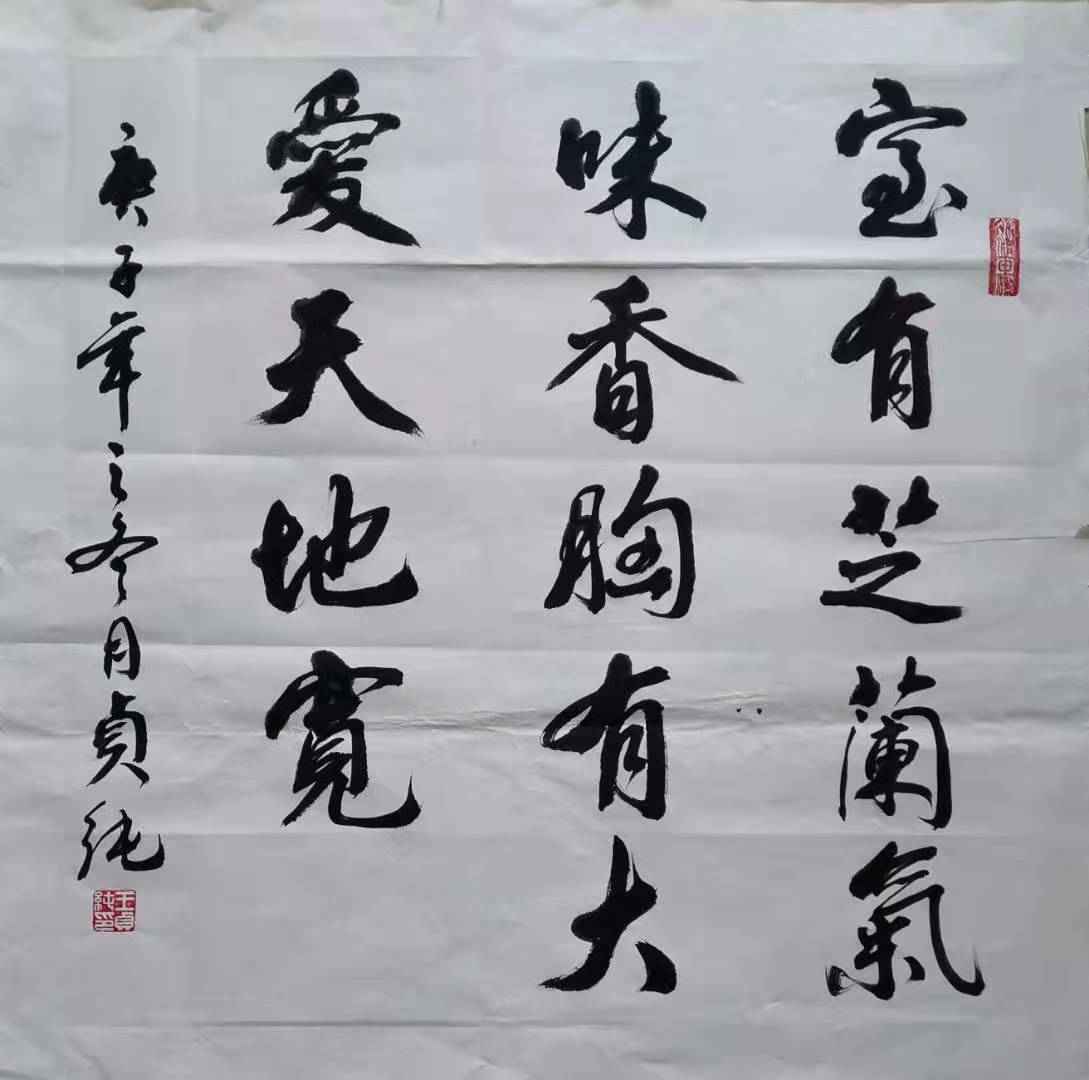 室有芝蘭氣
味香胸有大
愛天地寬
庚子年之冬月貞純
王貞純印